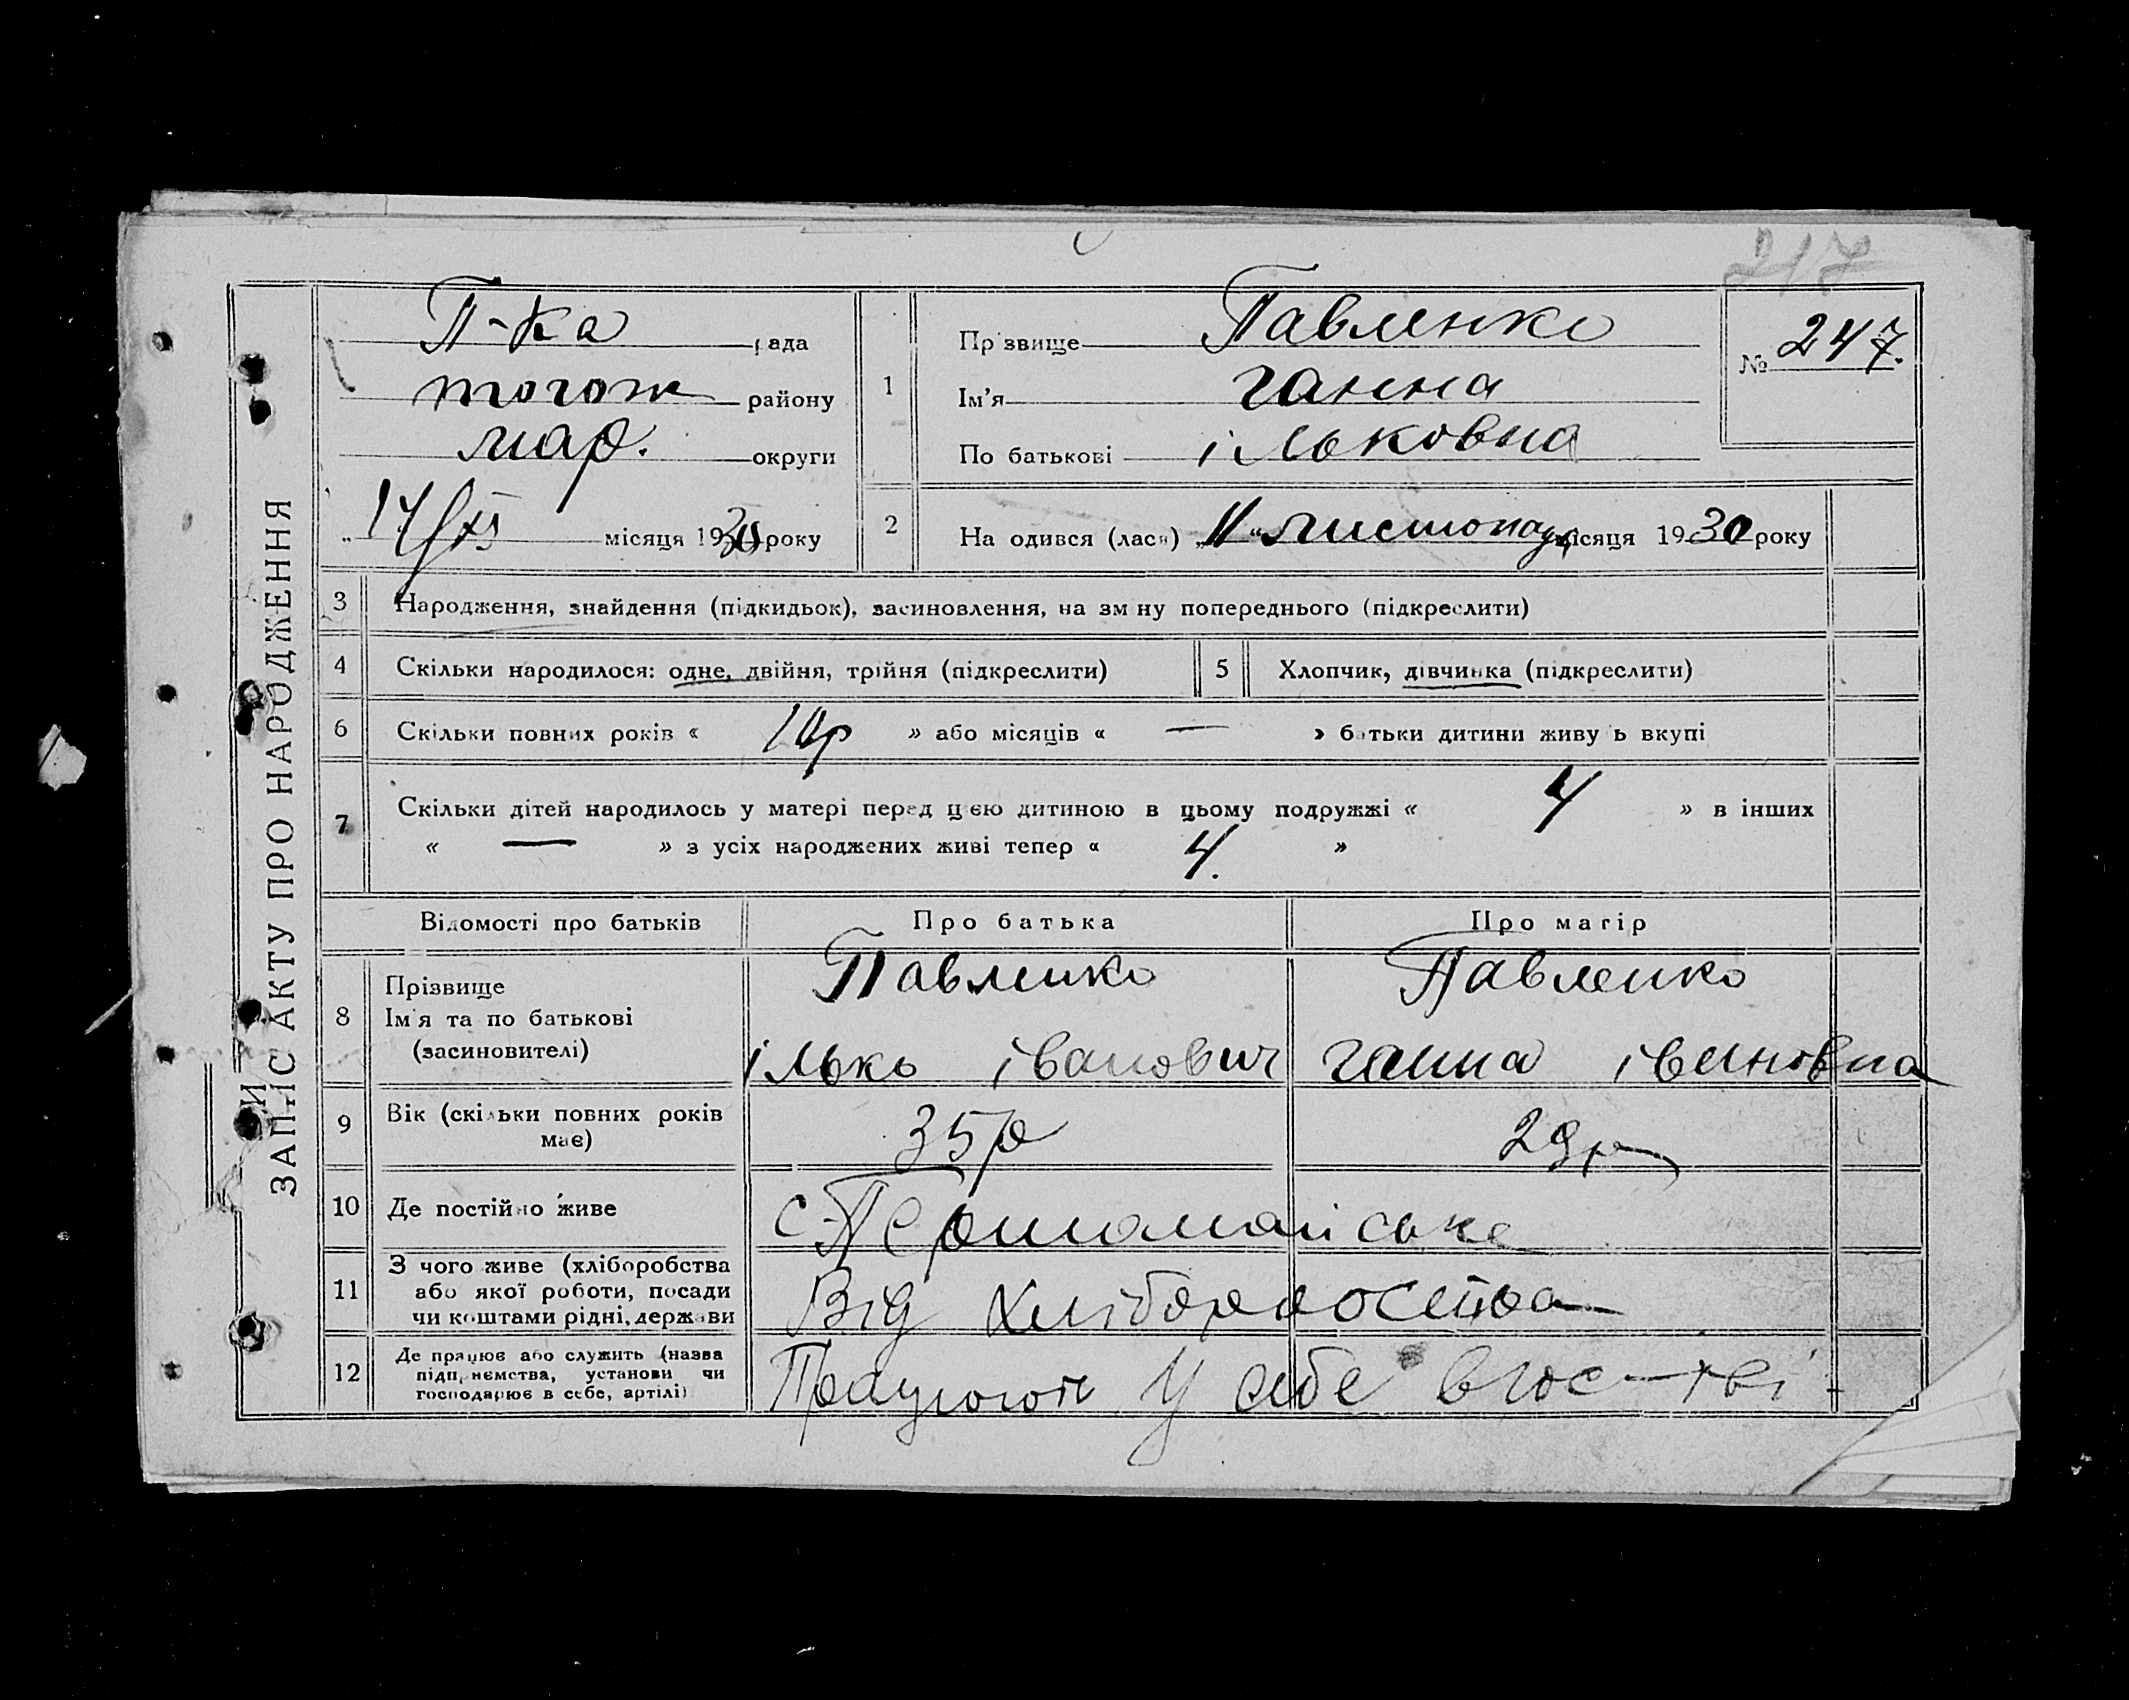 217
ЗАПИС АКТУ ПРО НАРОДЖЕННЯ
П-ка рада
тогож району
мар. округи
„ 14/XI місяця 1930 року
1
Прізвище Павленко
Ім'я ганна
По батькові ільковна
№ 247.
2 На одився (лася) „11“ листопад місяця 1930 року
3 Народження, знайдення (підкидьок), засиновлення, на зм ну попереднього (підкреслити)
4 Скільки народилося: одне, двійня, трійня (підкреслити) 5 Хлопчик, дівчинка (підкреслити)
6 Скільки повних років « 10р » або місяців « — » батьки дитини живу ь вкупі
7 Скільки дітей народилось у матері перед цією дитиною в цьому подружжі « 4 » в інших
« — » з усіх народжених живі тепер « 4. »
Відомості про батьків Про батька Про матір
8 Прізвище
Ім'я та по батькові
(засиновителі)
Павленко
ілько іванович
Павленко
ганна івановна
9 Вік (скільки повних років
має)
35р 29р
10 Де постійно живе с-Першомайське
11 З чого живе (хліборобства
або якої роботи, посади
чи коштами рідні, держави
Від хліборобства
12 Де працює або служить (назва
підприємства, установи чи
господарює в себе, артілі)
Працюють у себе в гос-тві